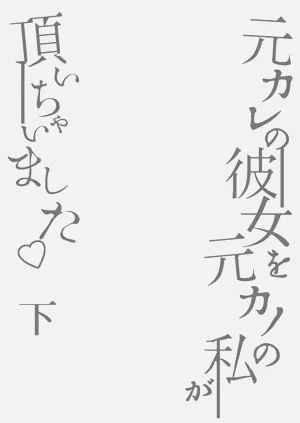 元カレの彼女を元カノの私が
頂いちゃいました♡
下